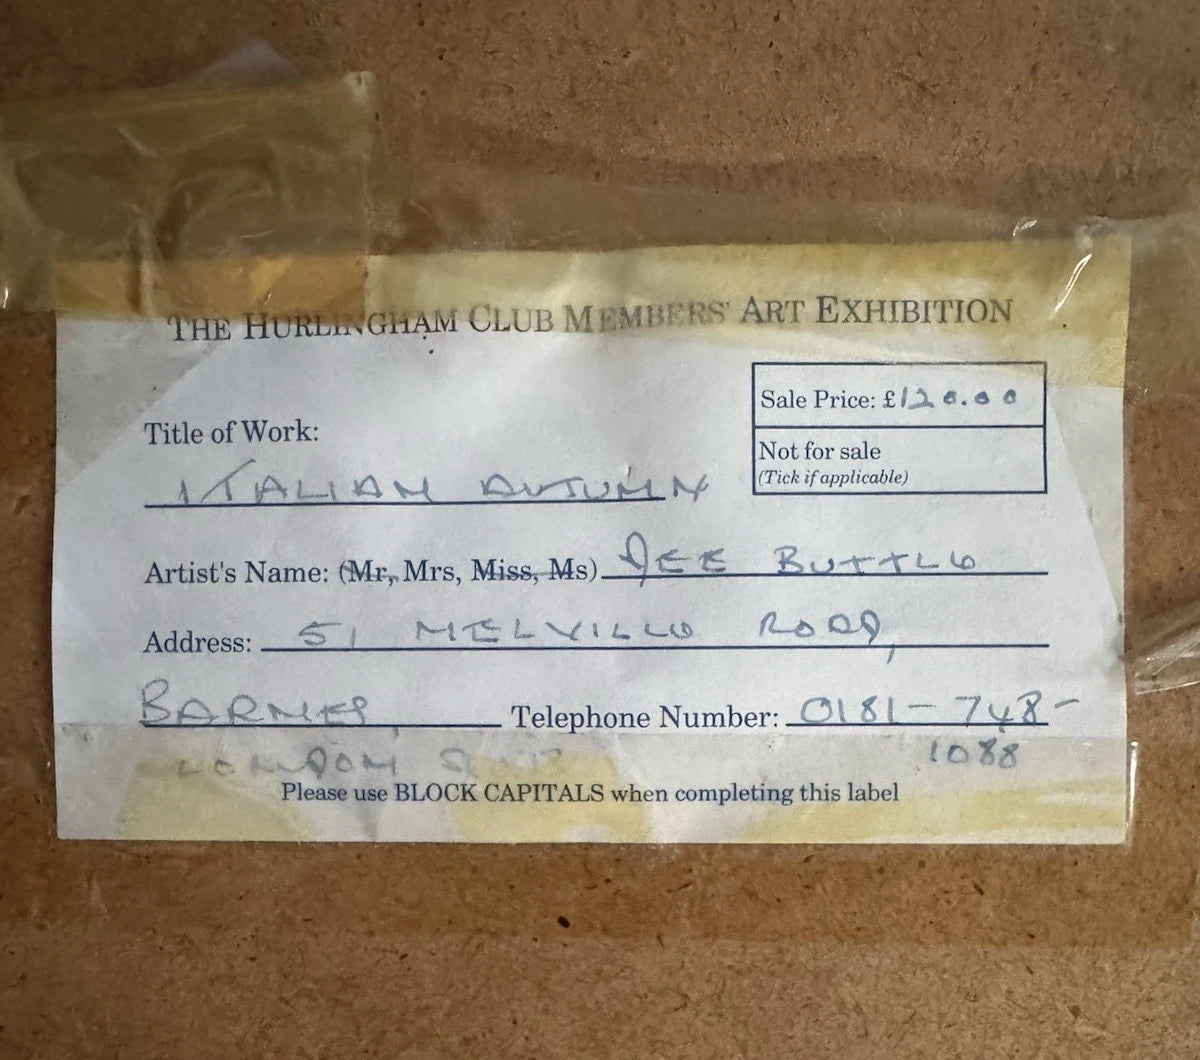 THE HURLINGHAM CLUB MEMBERS' ART EXHIBITION
Sale Price: £120.00
Not for sale
(Tick if applicable)
Title of Work:
ITALIAN AUTUMN
Artist's Name: (Mr, Mrs, Miss, Ms) DEE BUTTLE
Address: 51 MELVILLE ROAD,
BARNES, Telephone Number: 0181-748-
1088
LONDON
Please use BLOCK CAPITALS when completing this label